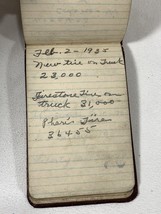 Feb. 2 - 1935
New tire on Truck
23,000
Firestone Tire on
truck 31,000
Tire
36455